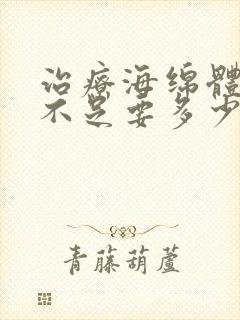 治療海綿體
不足要多少
青藤葫蘆